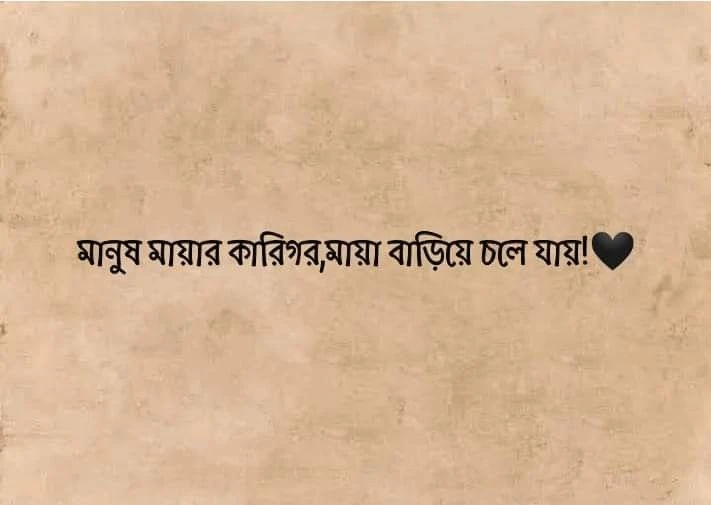 মানুষ মায়ার কারিগর,মায়া বাড়িয়ে চলে যায়!🖤